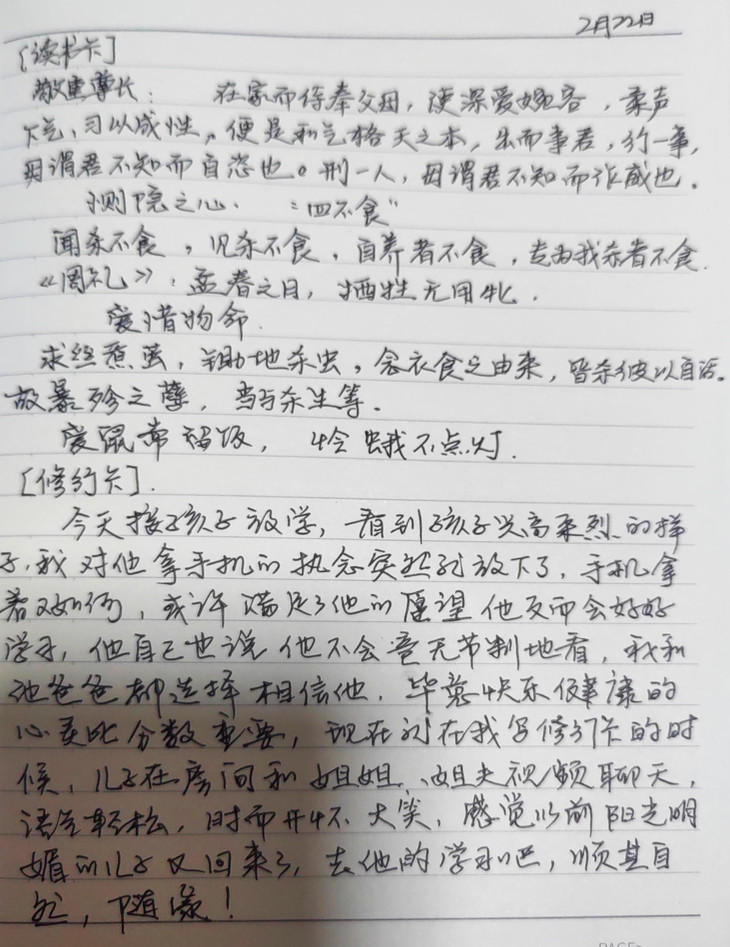 2月22日
[读书卡]
敬重尊长： 在家而侍奉父母，使深爱婉容，柔声
下气，习以成性，便是和气格天之本，出而事君，行一事，
毋谓君不知而自恣也。刑一人，毋谓君不知而作威也。
恻隐之心． “四不食”
闻杀不食，见杀不食，自养者不食，专为我杀者不食．
《周礼》：孟春之月，牺牲无用牝．
爱惜物命．
求丝煮茧，锄地杀虫，念衣食之由来，皆杀彼以自活。
故暴殄之孽，当与杀生等．
爱鼠常留饭，怜蛾不点灯．
[修行卡]．
今天接孩子放学，看到孩子兴高采烈的样
子，我对他拿手机的执念突然到放下了，手机拿
着又如何，或许满足了他的愿望他反而会好好
学习，他自己也说他不会毫无节制地看，我和
他爸爸都选择相信他．毕竟快乐健康的
心灵比分数重要，现在到在我写修行卡的时
候，儿子在房间和姐姐、姐夫视频聊天，
语气轻松，时而开怀大笑，感觉以前阳光明
媚的儿子又回来了，去他的学习吧，顺其自
然，随缘！